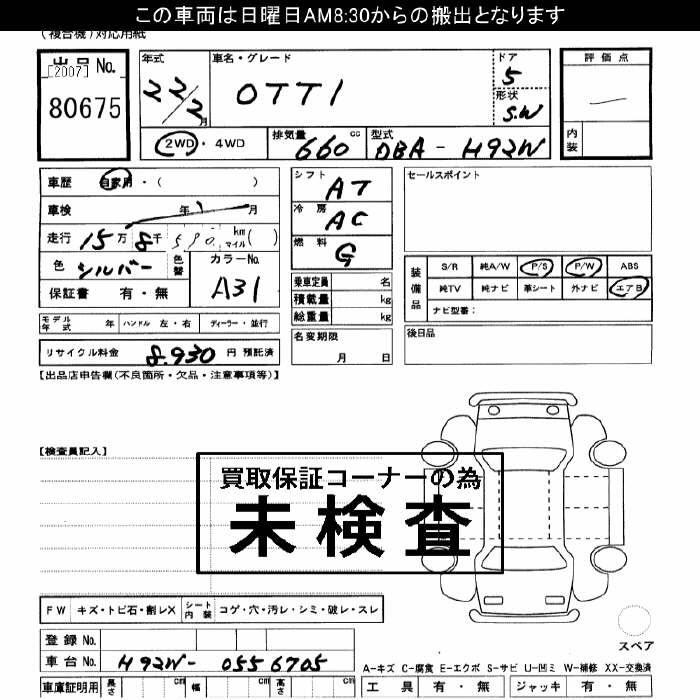 この車両は日曜日AM8:30からの搬出となります
(複合機)対応用紙
出品No.
[2007]
80675
年式
22/2月
車名・グレード
OTTI
ドア
5
形状
S.W
評価点
内装
2WD・4WD
排気量
660 cc
型式
DBA - H92W
車歴 自家用・( )
車検 年 月
走行 15万 8千 590 km マイル( )
色 シルバー 色替
カラーNo.
A31
保証書 有・無
シフト
AT
冷房
AC
燃料
G
乗車定員 名
積載量 kg
総重量 kg
名変期限
月 日
セールスポイント
装備品
S/R 純A/W P/S P/W ABS
純TV 純ナビ 革シート 外ナビ エアB
ナビ型番:
後日品
モデル年式 年 ハンドル 左・右 ディーラー・並行
リサイクル料金 8.930 円 預託済
【出品店申告欄(不良箇所・欠品・注意事項等)】
【検査員記入】
買取保証コーナーの為
未検査
FW キズ・トビ石・割レX シート内装 コゲ・穴・汚レ・シミ・破レ・スレ
登録No.
車台No. H92W- 0556705
車庫証明用 長さ cm 幅 cm 高さ cm
スペア
A-キズ C-腐食 E-エクボ S-サビ U-凹ミ W-補修 XX-交換済
工具 有・無 ジャッキ 有・無